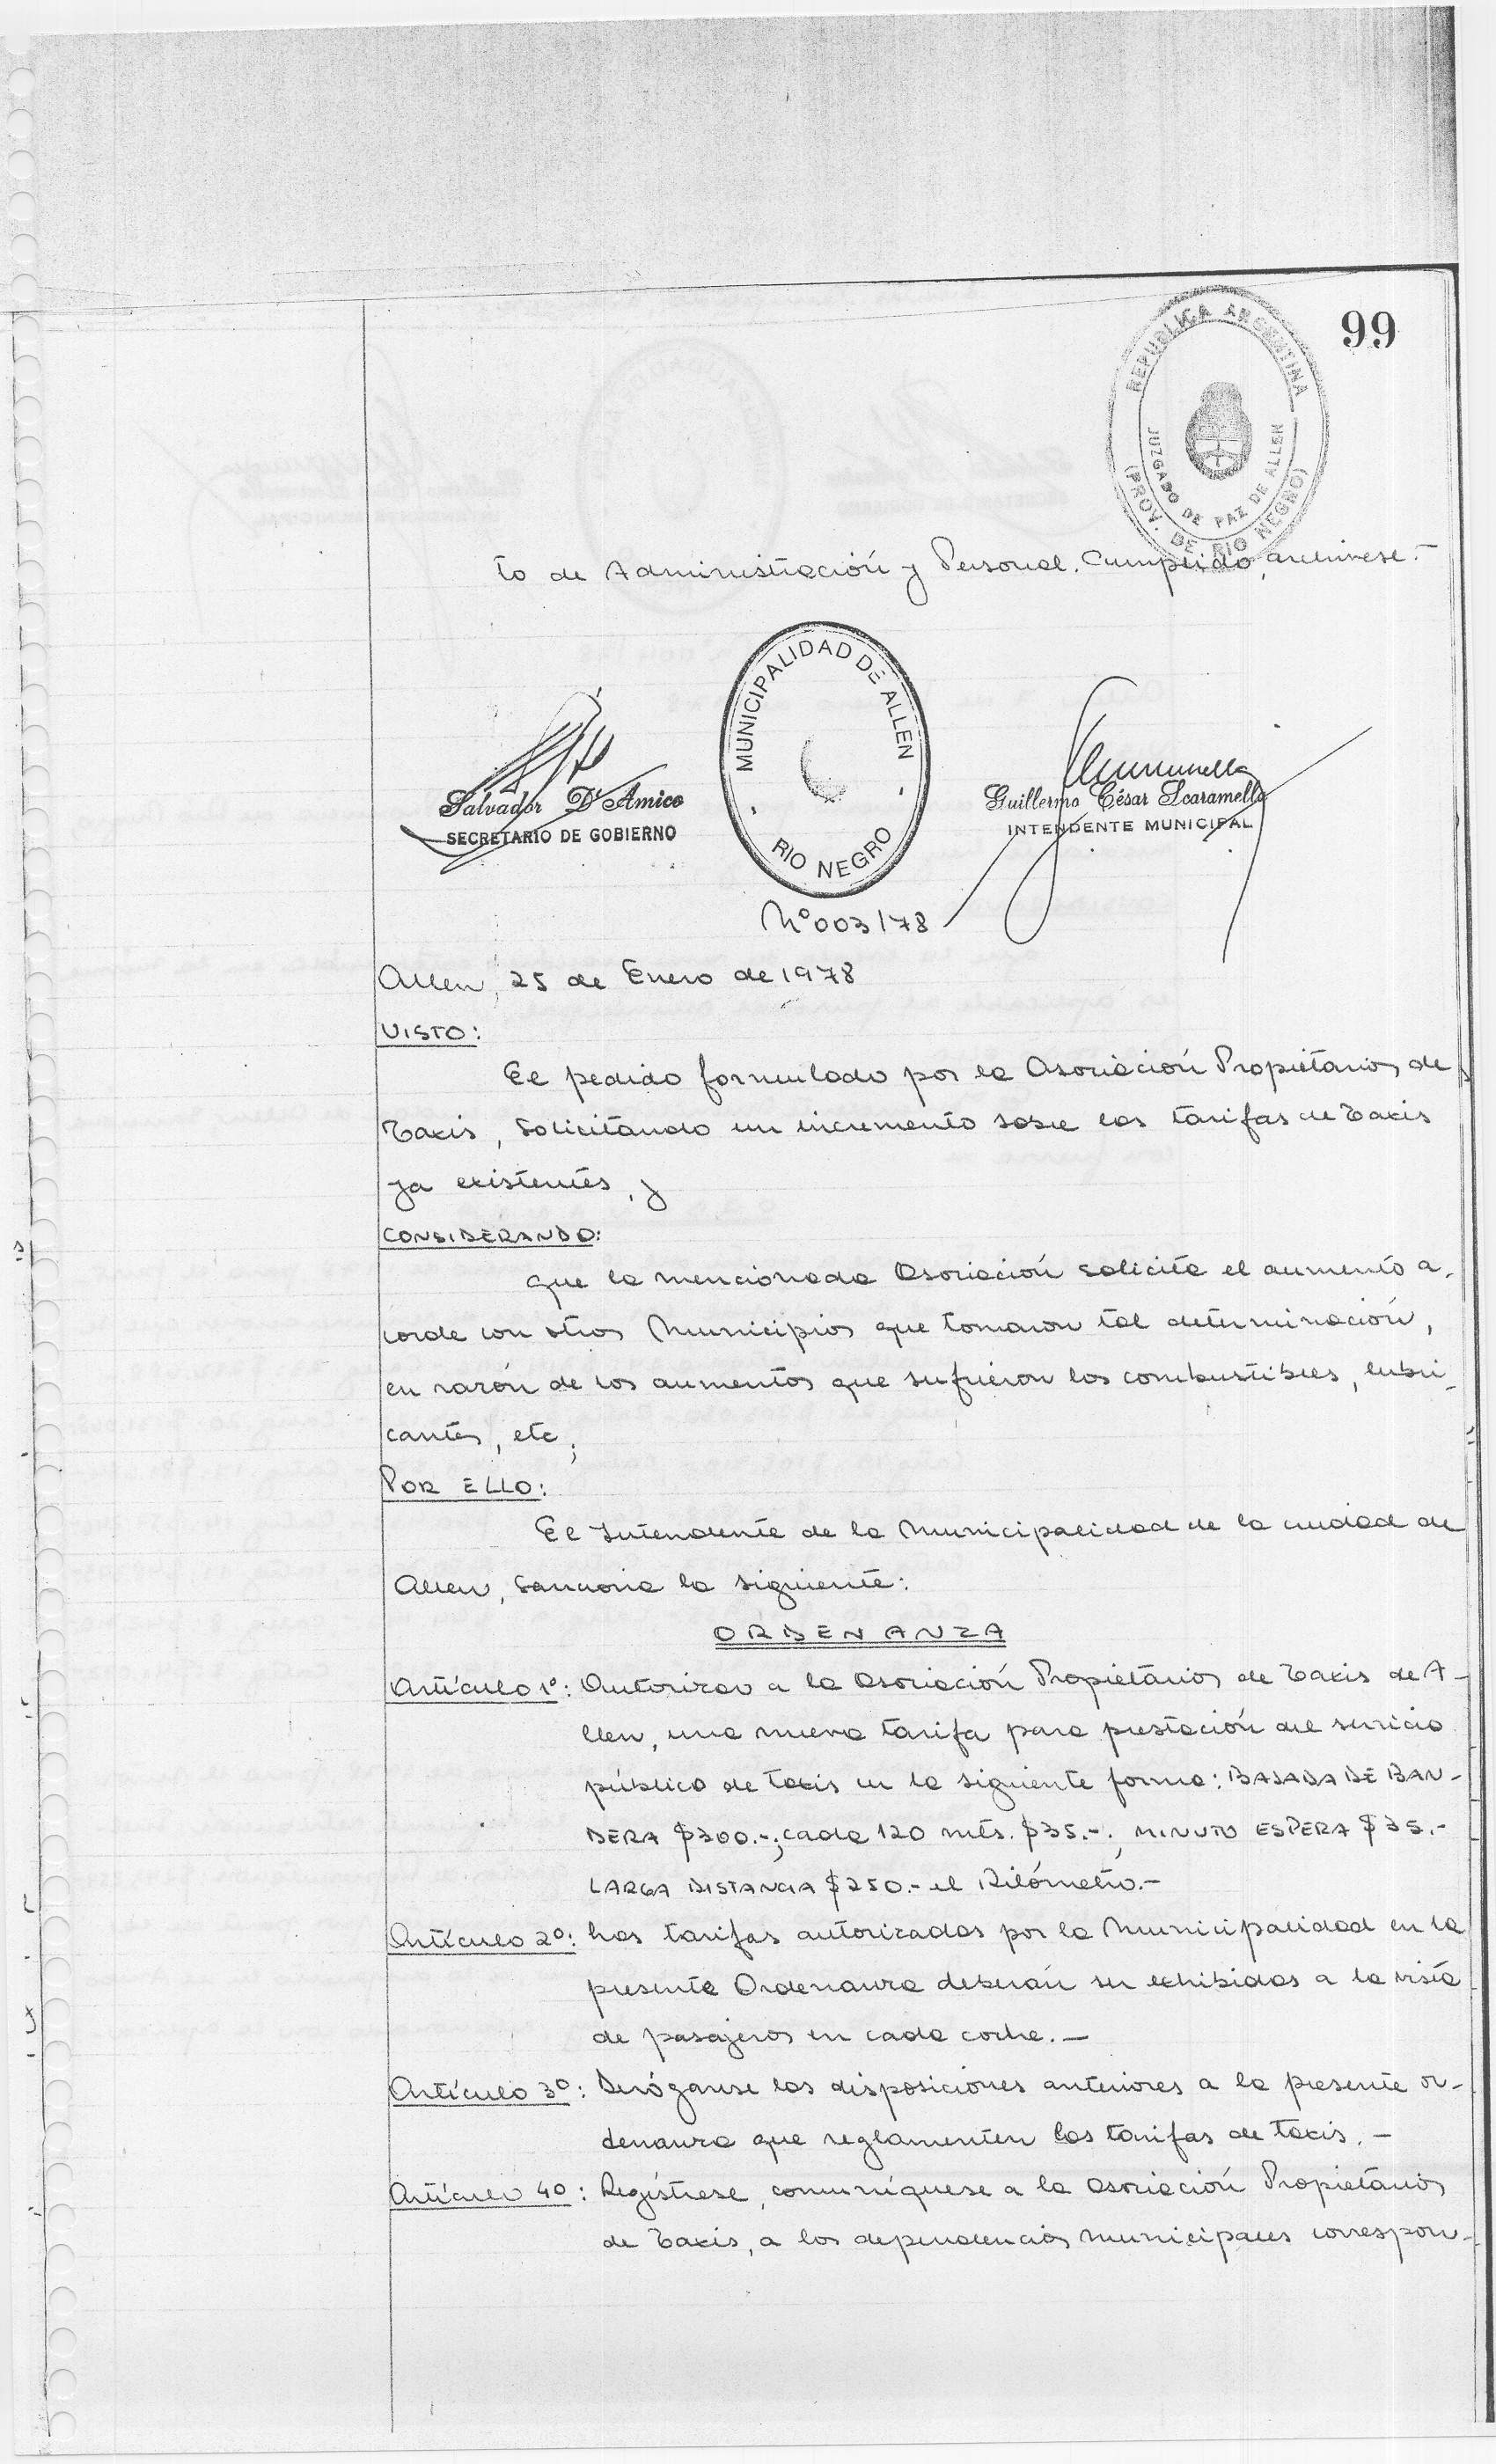 99
REPUBLICA ARGENTINA
JUZGADO DE PAZ DE ALLEN
(PROV. DE RIO NEGRO)
to de Administración y Personal. Cumplido, archívese.-
MUNICIPALIDAD DE ALLEN
RIO NEGRO
Salvador D'Amico
SECRETARIO DE GOBIERNO
Guillermo César Scaramella
INTENDENTE MUNICIPAL
Nº 003/78
Allen, 25 de Enero de 1978
VISTO:
El pedido formulado por la Asociación Propietarios de
Taxis, solicitando un incremento sobre las tarifas de Taxis
ya existentes, y
CONSIDERANDO:
Que la mencionada Asociación solicita el aumento a-
corde con otros Municipios que tomaron tal determinación,
en razón de los aumentos que sufrieron los combustibles, lubri-
cantes, etc;
POR ELLO:
El Intendente de la Municipalidad de la ciudad de
Allen, Sanciona la siguiente:
ORDENANZA
Artículo 1º: Autorizar a la Asociación Propietarios de Taxis de A-
llen, una nueva tarifa para prestación del servicio
público de taxis en la siguiente forma: BAJADA DE BAN-
DERA $300.-; cada 120 mts. $35.-; MINUTO ESPERA $35.-
LARGA DISTANCIA $250.- el Kilómetro.-
Artículo 2º: Las tarifas autorizadas por la Municipalidad en la
presente Ordenanza deberán ser exhibidas a la vista
de pasajeros en cada coche.-
Artículo 3º: Deróganse las disposiciones anteriores a la presente or-
denanza que reglamenten las tarifas de taxis.-
Artículo 4º: Regístrese, comuníquese a la Asociación Propietarios
de Taxis, a las dependencias municipales correspon-